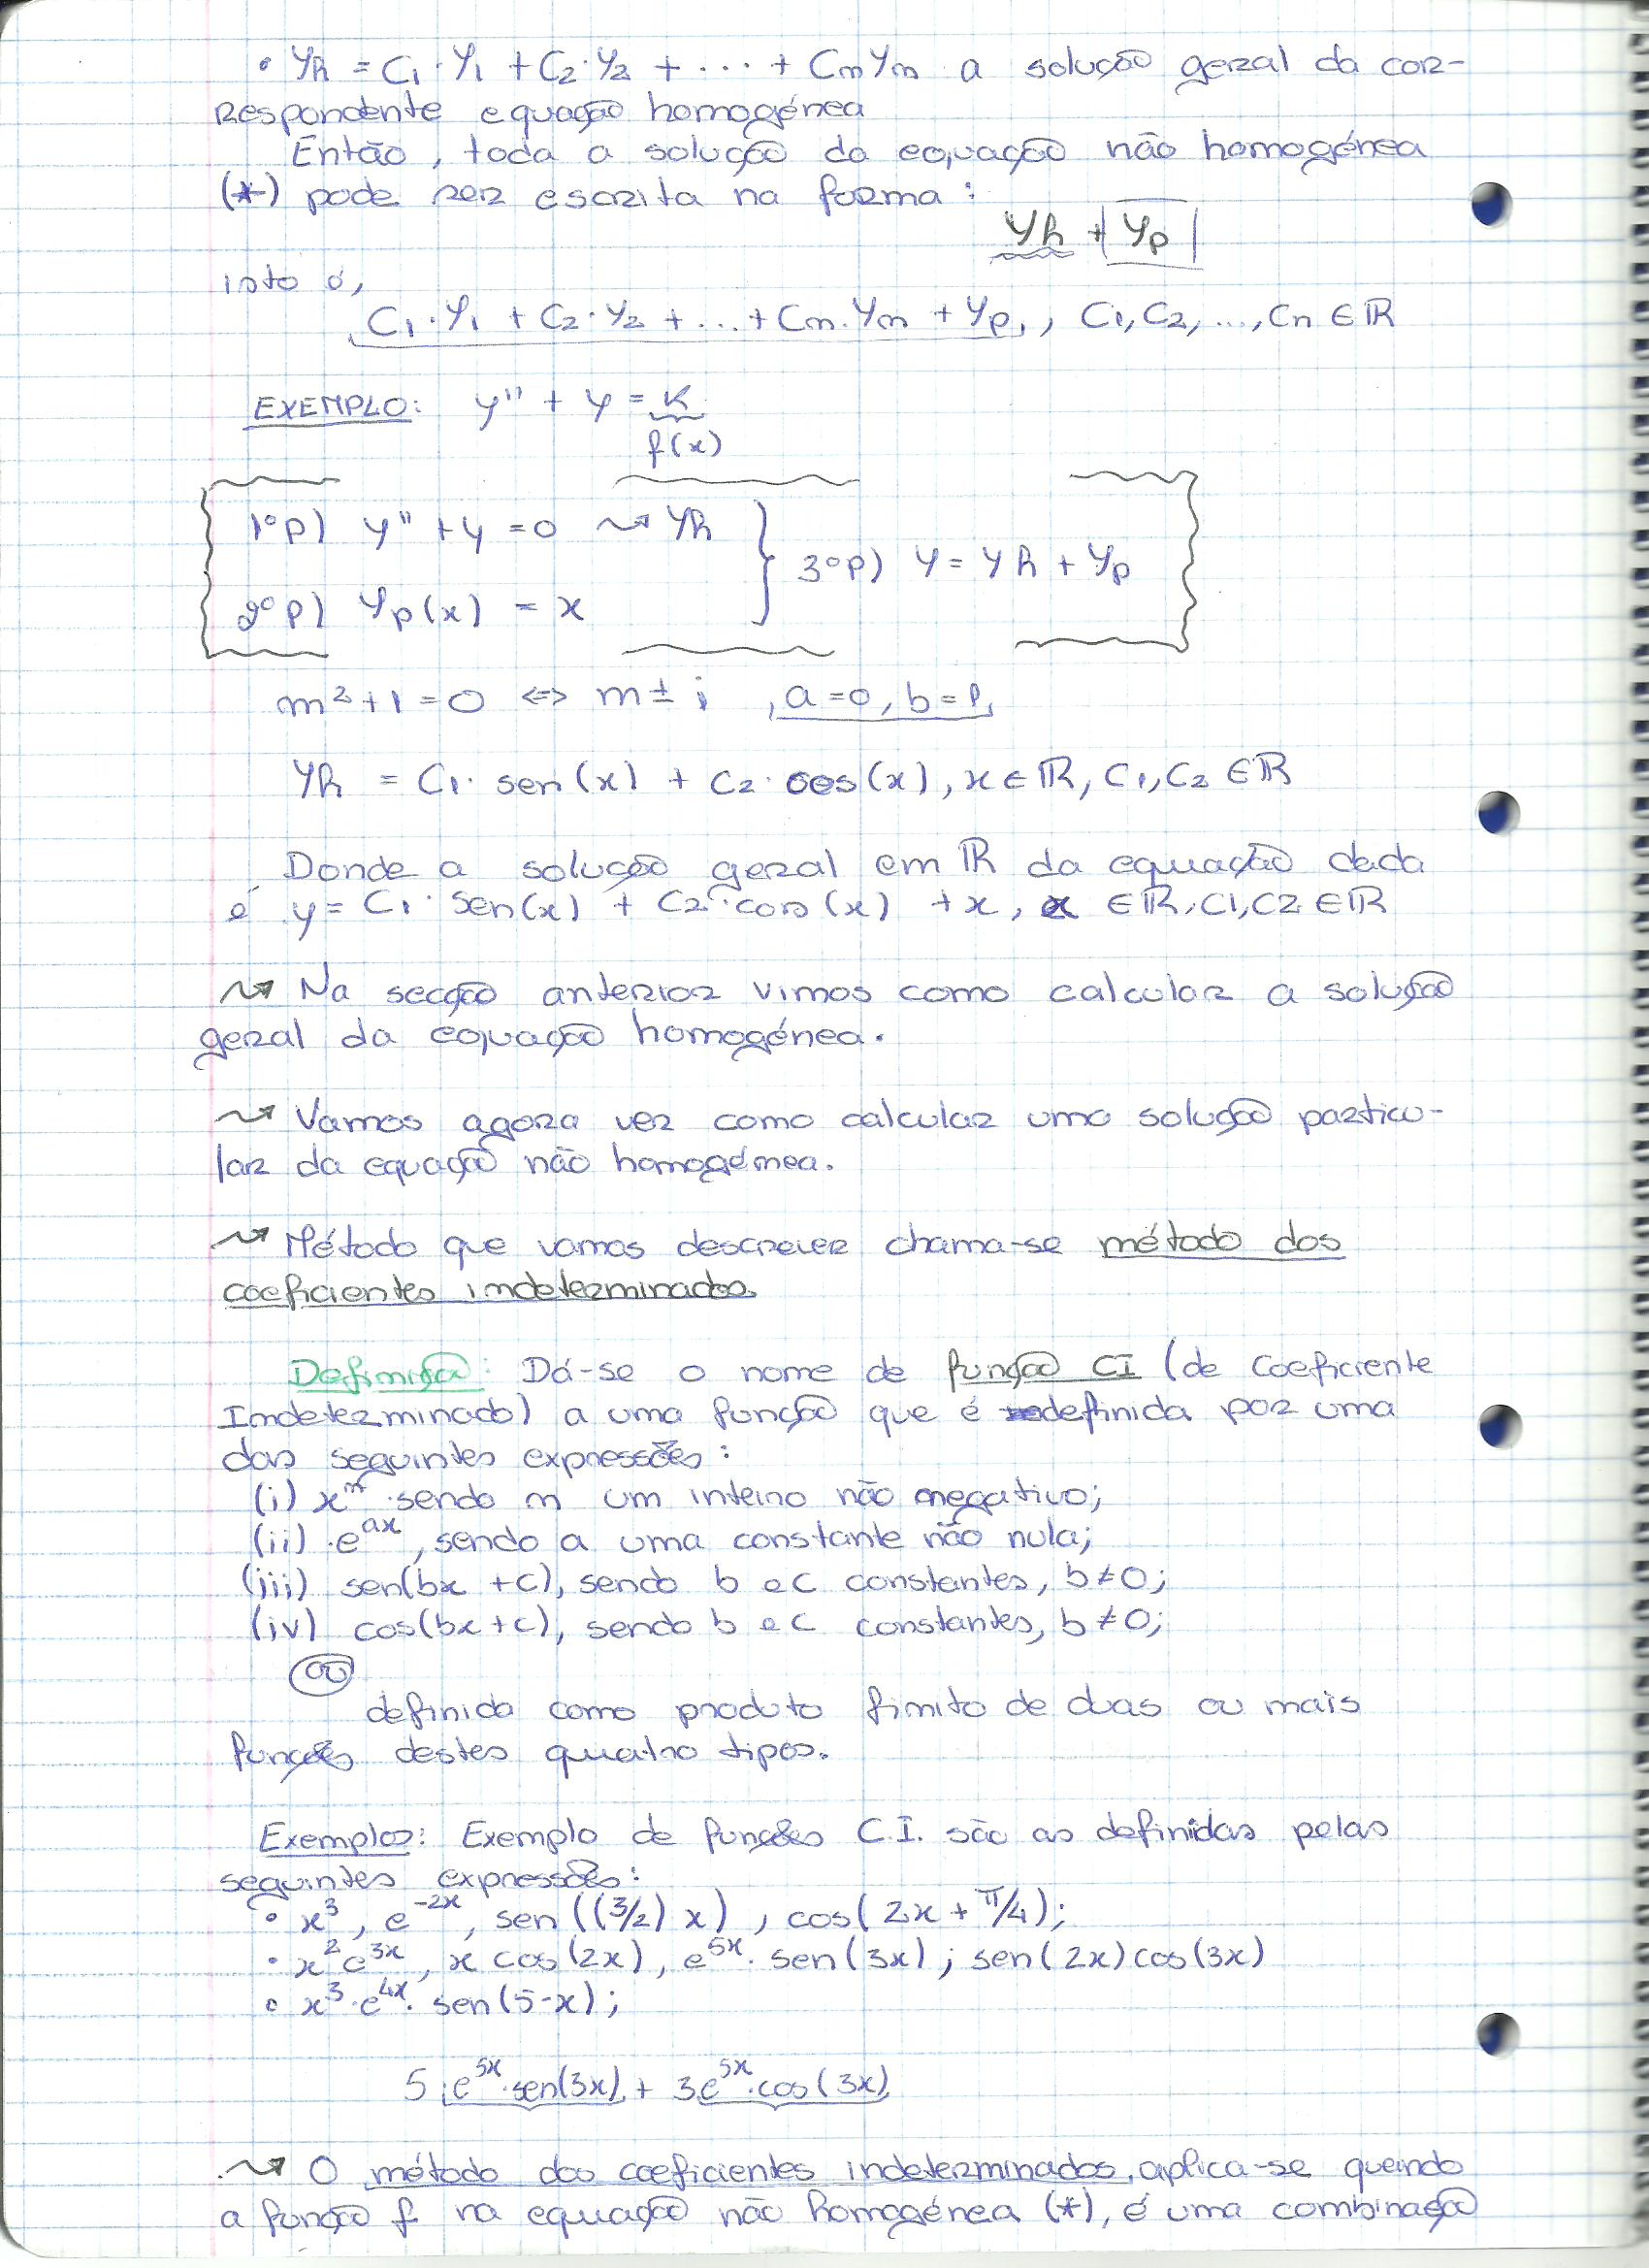 • yh = C1·y1 + C2·y2 + ... + Cnyn a solução geral da cor-
respondente equação homogénea
Então, toda a solução da equação não homogénea
(*) pode ser escrita na forma:
yh + yp
isto é,
C1·y1 + C2·y2 + ... + Cn·yn + yp, C1, C2, ..., Cn ∈ ℝ
EXEMPLO: y'' + y = x
f(x)
1ºp) y'' + y = 0 ⇝ yh
3ºp) y = yh + yp
2ºp) yp(x) = x
m² + 1 = 0 ⇔ m ± i, a = 0, b = 1,
yh = C1· sen(x) + C2· cos(x), x ∈ ℝ, C1, C2 ∈ ℝ
Donde a solução geral em ℝ da equação dada
é y = C1· sen(x) + C2·cos(x) + x, x ∈ ℝ, C1, C2 ∈ ℝ
⇝ Na secção anterior vimos como calcular a solução
geral da equação homogénea.
⇝ Vamos agora ver como calcular uma solução particu-
lar da equação não homogénea.
⇝ Método que vamos descrever chama-se método dos
coeficientes indeterminados
Definição: Dá-se o nome de função CI (de Coeficiente
Indeterminado) a uma função que é definida por uma
das seguintes expressões:
(i) xⁿ sendo n um inteiro não negativo;
(ii) e^ax, sendo a uma constante não nula;
(iii) sen(bx + c), sendo b e c constantes, b ≠ 0;
(iv) cos(bx + c), sendo b e c constantes, b ≠ 0;
ou
definida como produto finito de duas ou mais
funções destes quatro tipos.
Exemplos: Exemplo de funções C.I. são as definidas pelas
seguintes expressões:
• x³, e^-2x, sen((3/2) x), cos(2x + π/4);
• x²e^3x, x cos(2x), e^5x· sen(3x); sen(2x)cos(3x)
• x³·e^4x· sen(5-x);
5·e^5x·sen(3x) + 3e^5x·cos(3x)
⇝ O método dos coeficientes indeterminados, aplica-se quando
a função f na equação não homogénea (*), é uma combinação